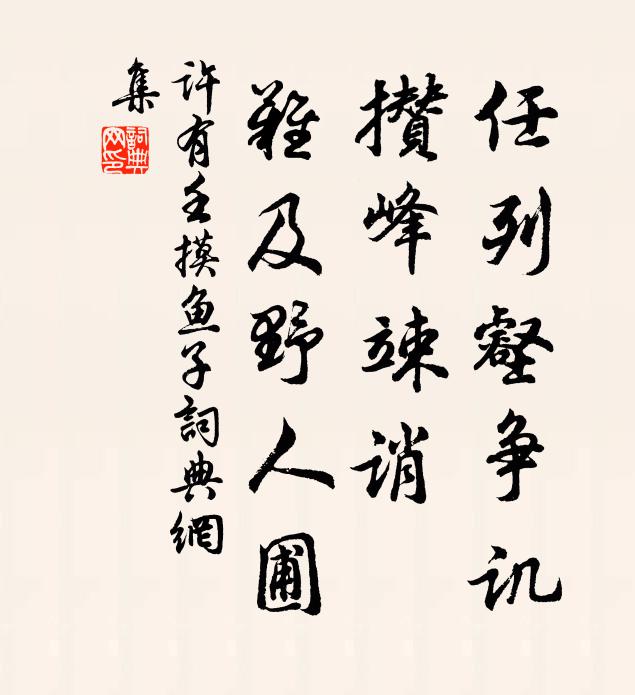 任列壑争讥
攒峰竦诮
难及野人圃
许有壬摸鱼子詞典網
集
詞典
网印